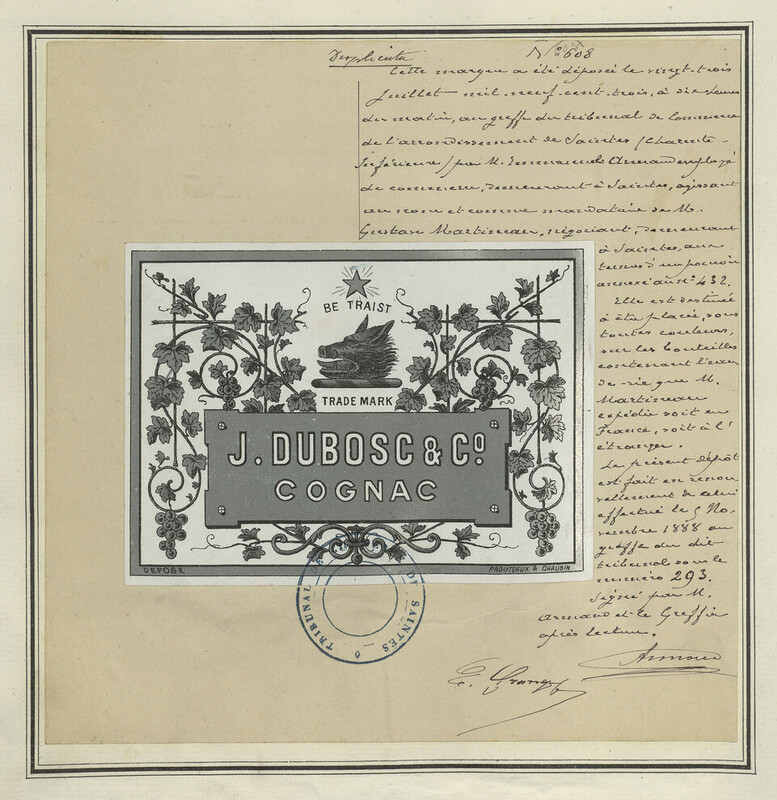 Duplicata
N° 608
Cette marque a été déposée le vingt-trois
Juillet mil neuf cent trois, à dix heures
du matin, au greffe du tribunal de Commerce
de l'arrondissement de Saintes (Charente-
Inférieure) par M. Emmanuel Armand employé
de commerce, demeurant à Saintes, agissant
au nom et comme mandataire de M.
Gustave Martineau, négociant, demeurant
à Saintes, aux
termes d'un pouvoir
annexé au n° 432.
Elle est destinée
à être placée, sous
toutes couleurs,
sur les bouteilles
contenant l'eau
de-vie que M.
Martineau
expédie soit en
France, soit à l'
étranger.
Le présent dépôt
est fait en renou
vellement de celui
effectué le 5 No-
vembre 1888 au
greffe du dit
tribunal sous le
numéro 293.
Signé par M.
Armand et le Greffier
après lecture.
Armand
BE TRAIST
TRADE MARK
J. DUBOSC & Co
COGNAC
DEPOSE
PROUTEAUX & CHAUBIN
TRIBUNAL DE DE SAINTES